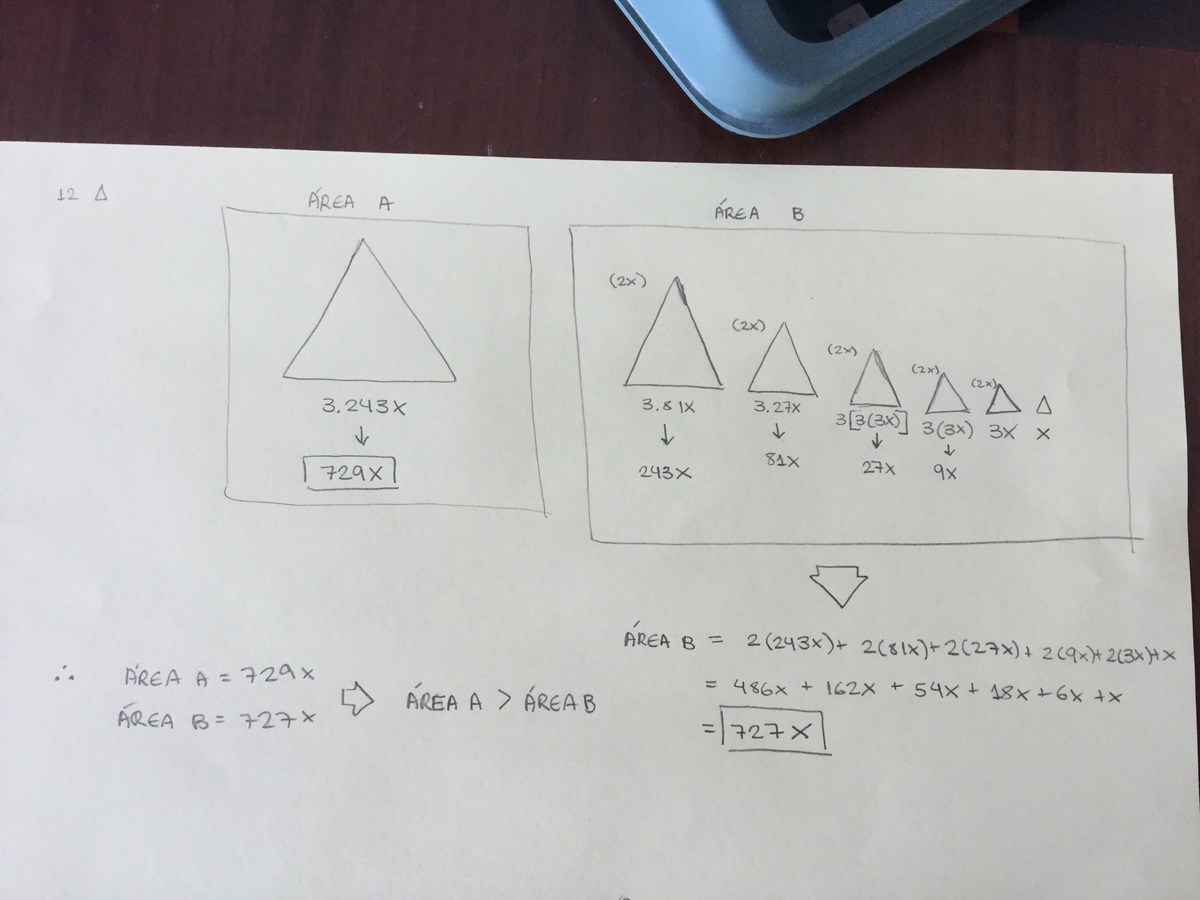 12 Δ
ÁREA A
3.243X
↓
729X
ÁREA B
(2x) (2x) (2x) (2x) (2x)
3.81X 3.27X 3[3(3X)] 3(3X) 3X X
↓ ↓ ↓ ↓
243X 81X 27X 9X
ÁREA B = 2(243X)+ 2(81X)+2(27X)+2(9X)+2(3X)+X
= 486X + 162X + 54X + 18X + 6X + X
= 727X
∴ ÁREA A = 729X
ÁREA B = 727X
⇨ ÁREA A > ÁREA B